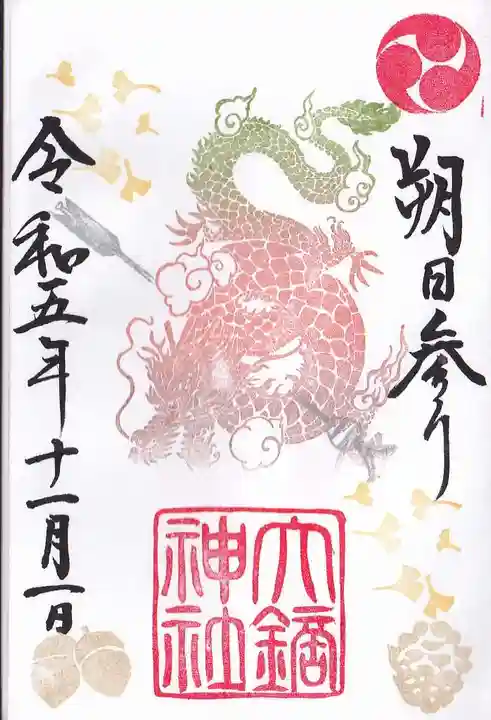 朔日参り
大鏑神社
令和五年十一月一日